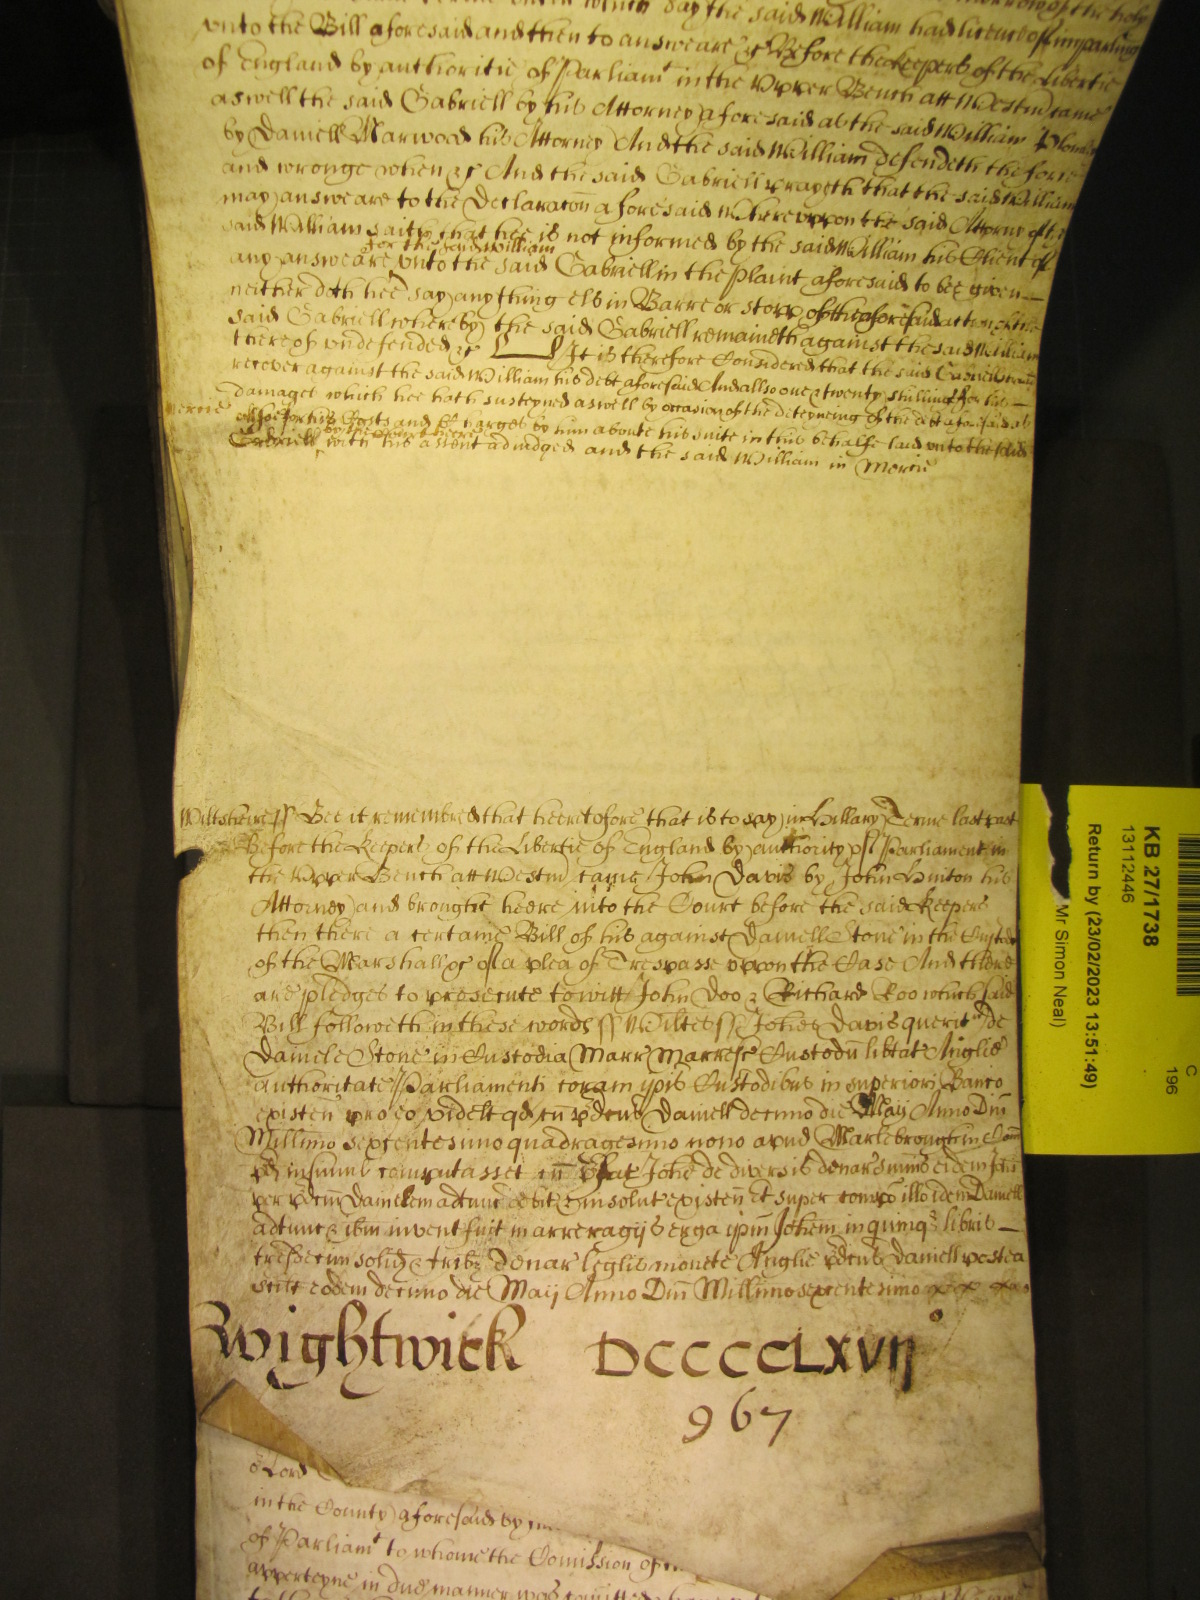 day the said William had licence of imparling
unto the Bill aforesaid and then to answeare &c Before the keepers of the Libertie
of England by authoritie of Parliamt in the Upper Bench att Westm came
aswell the said Gabriell by his Attorney aforesaid as the said William
by Daniell Marwood his Attorney And the said William defendeth the force
and wronge when &c And the said Gabriell prayeth that the said William
may answeare to the Declaracon aforesaid Whereuppon the said Attorney of the
said William saith that hee is not informed by the said William his Client of
for the said William
any answeare unto the said Gabriell in the plaint aforesaid to bee given
neither doth hee say any thing els in Barre or stopp of the aforesaid accon of the
said Gabriell whereby the said Gabriell remaineth against the said William
thereof undefended &c It is therefore Considered that the said Gabriell
recover against the said William his debt aforesaid And allso one & twenty shillings for his
damages which hee hath susteyned aswell by occasion of the deteyneing of the debt aforesaid as
Mercie
for his Costs and Charges by him aboute his suite in this behalfe laid unto the said
by the Court heere
Gabriell with his assent adiudged and the said William in Mercie
Wiltsheire ss Bee it remembred that heeretofore that is to say in Hillary Terme last past
before the Keepers of the Libertie of England by authority of Parliament in
the Upper Bench att Westm came John Davis by John Hinton his
Attorney and brought heere into the Court before the said Keepers
then there a certaine Bill of his against Daniell Stone in the Custody
of the Marshall &c of a plea of Trespasse uppon the Case And there
are pledges to prosecute to witt John Doo & Richard Roo which said
Bill followeth in these words ss Wiltes ss Johes Davis querit de
Daniele Stone in Custodia Marr Marresc Custodu libtat Anglie
authoritate Parliamenti coram ipis Custodibus in superiori Banco
existen pro eo videlt qd cu pdcus Daniell decimo die Maij Anno Dni
Millimo sexcentesimo quadragesimo nono apud Marlebrough in Com
pd insimul computasset cu pfat Johe de diversis denar sumis eidem Johi
per pdcm Danielem adtunc debit & insolut existen Et super compo illo idem Daniell
adtunc & ibm invent fuit in arreragijs erga ipm Johem in quinq libris
tresdecim solid & trib denar legalis monete Anglie pdcus Daniell postea
scilt eodem decimo die Maij Anno Dni Millimo sexcentesimo
Wightwick DCCCCCLXVII
967
Lord
in the County aforesaid by
of Parliamt to whome the Comission of
apperteyne in due manner was comitted
KB 27/1738
13112446
Return by (23/02/2023 13:51:49)
Mr Simon Neal)
C
196